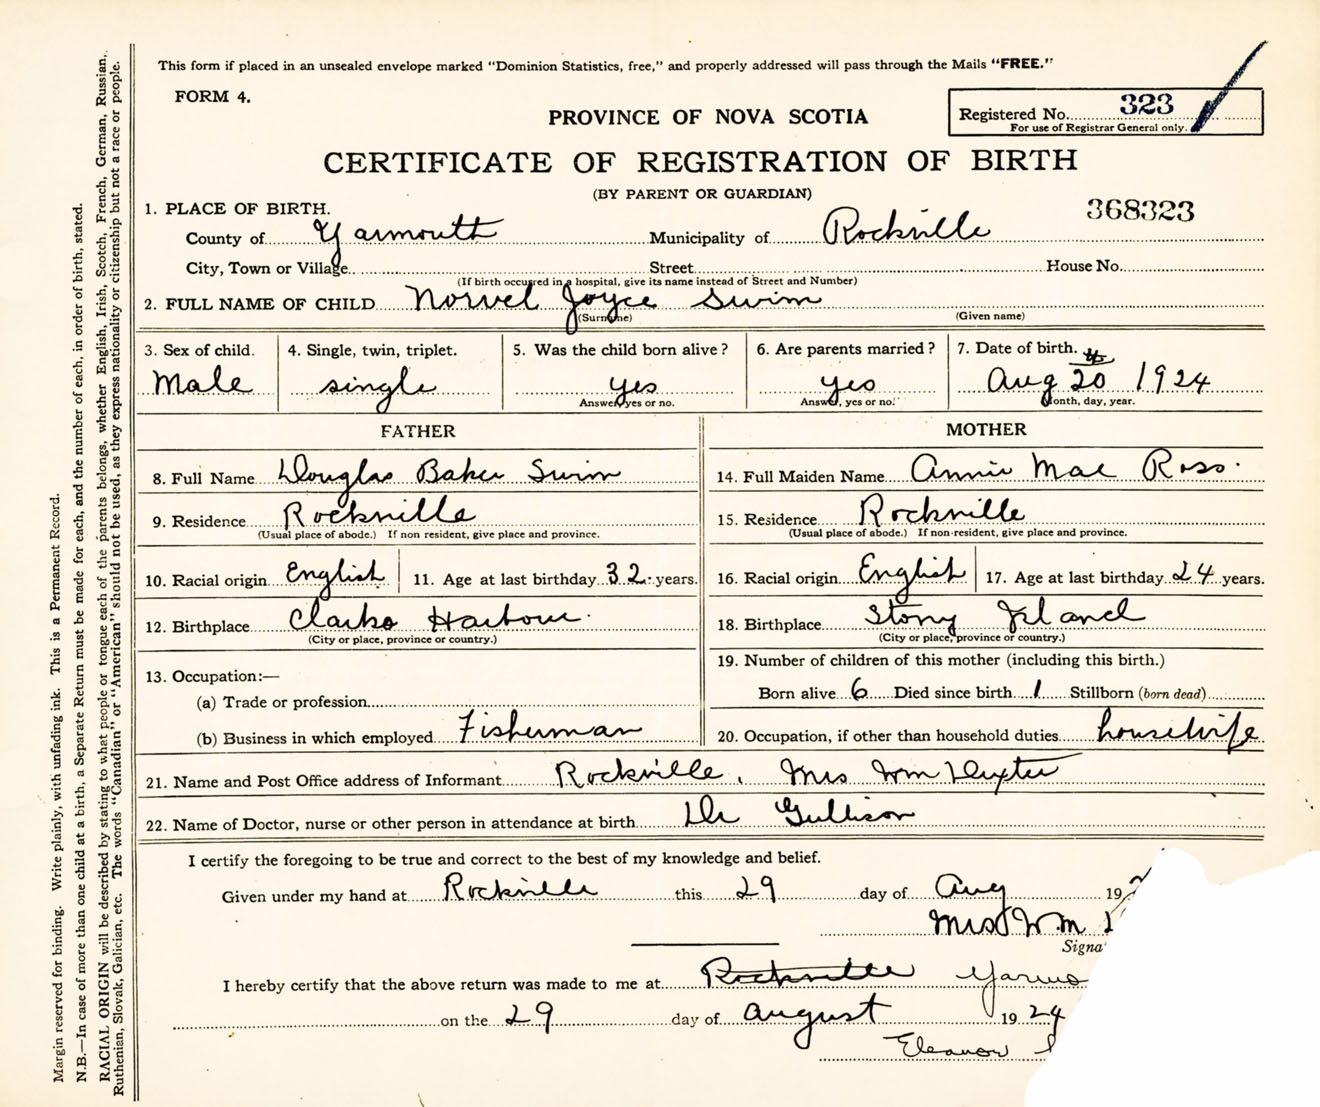 This form if placed in an unsealed envelope marked "Dominion Statistics, free," and properly addressed will pass through the Mails "FREE."
FORM 4.
PROVINCE OF NOVA SCOTIA
Registered No. 323
For use of Registrar General only.
CERTIFICATE OF REGISTRATION OF BIRTH
(BY PARENT OR GUARDIAN)
368323
1. PLACE OF BIRTH.
County of Yarmouth Municipality of Rockville
City, Town or Village Street House No.
(If birth occured in a hospital, give its name instead of Street and Number)
2. FULL NAME OF CHILD Norvel Joyce Swim
(Surname) (Given name)
3. Sex of child. 4. Single, twin, triplet. 5. Was the child born alive? 6. Are parents married? 7. Date of birth.
Male single yes yes Aug 20th 1924
Answer, yes or no. Answer, yes or no. Month, day, year.
FATHER MOTHER
8. Full Name Douglas Baker Swim 14. Full Maiden Name Annie Mae Ross.
9. Residence Rockville 15. Residence Rockville
(Usual place of abode.) If non resident, give place and province. (Usual place of abode.) If non-resident, give place and province.
10. Racial origin English 11. Age at last birthday 32 years. 16. Racial origin English 17. Age at last birthday 24 years.
12. Birthplace Clarks Harbour. 18. Birthplace Stony Island
(City or place, province or country.) (City or place, province or country.)
13. Occupation:— 19. Number of children of this mother (including this birth.)
(a) Trade or profession Born alive 6 Died since birth 1 Stillborn (born dead)
(b) Business in which employed Fisherman 20. Occupation, if other than household duties housewife
21. Name and Post Office address of Informant Rockville, Mrs Wm Dexter
22. Name of Doctor, nurse or other person in attendance at birth Dr Gullison
I certify the foregoing to be true and correct to the best of my knowledge and belief.
Given under my hand at Rockville this 29 day of Aug 192
Mrs Wm
Signa
I hereby certify that the above return was made to me at Rockville Yarmo
on the 29 day of August 1924
Eleanor
Margin reserved for binding. Write plainly, with unfading ink. This is a Permanent Record.
N.B.—In case of more than one child at a birth, a Separate Return must be made for each, and the number of each, in order of birth, stated.
RACIAL ORIGIN will be described by stating to what people or tongue each of the parents belongs, whether English, Irish, Scotch, French, German, Russian,
Ruthenian, Slovak, Galician, etc. The words "Canadian" or "American" should not be used, as they express nationality or citizenship but not a race or people.